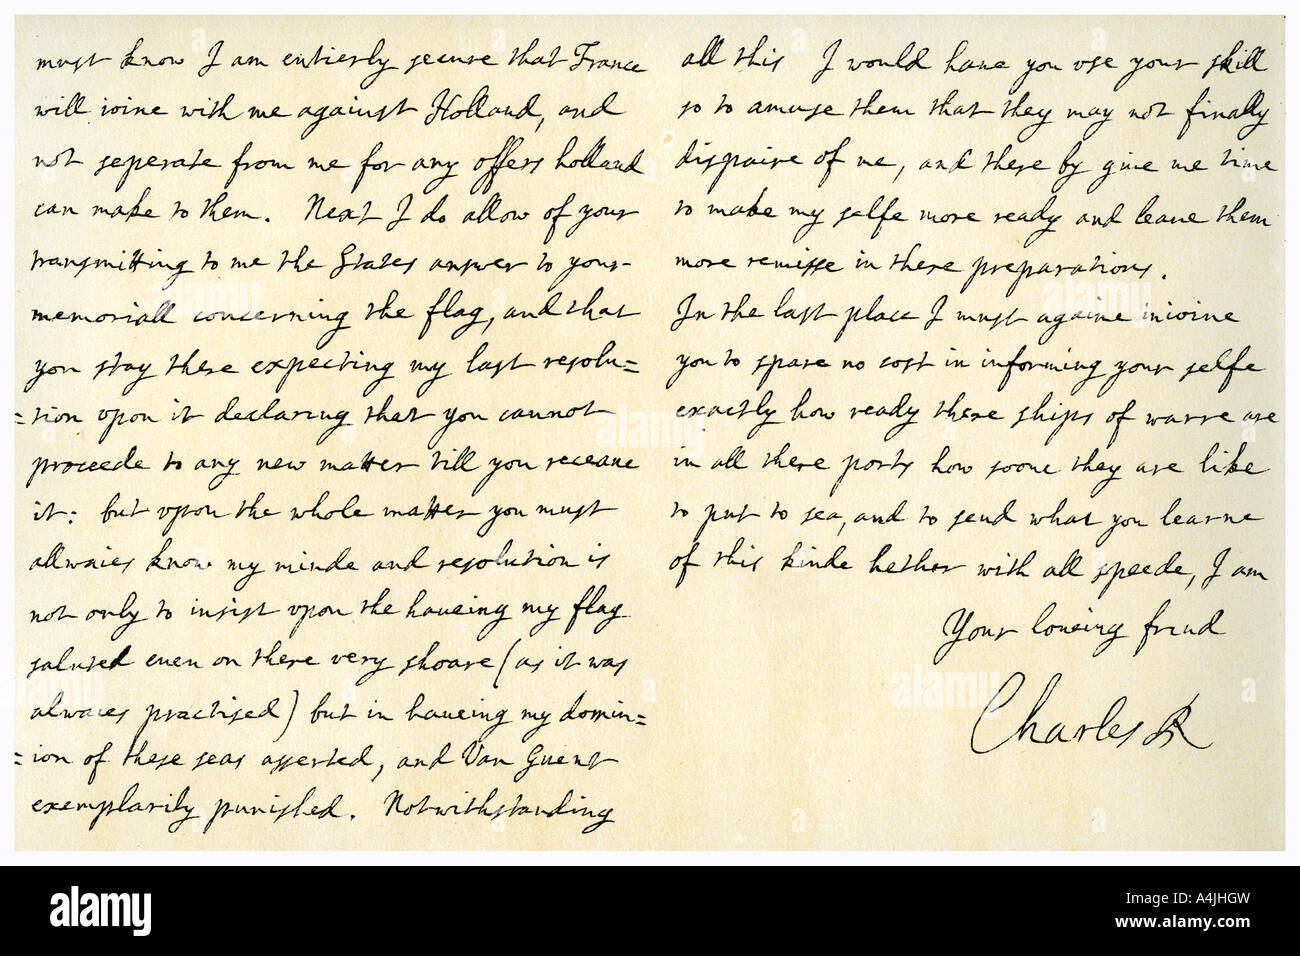 must know I am entierly secure that France
will ioine with me against Holland, and
not seperate from me for any offers holland
can make to them. Next I do allow of your
transmitting to me the States answer to your
memoriall concerning the flag, and that
you stay there expecting my last resolu=
=tion upon it declaring that you cannot
proceede to any new matter till you receaue
it: but upon the whole matter you must
allwaies know my minde and resolution is
not only to insist upon the haueing my flag
saluted euen on there very shoare (as it was
alwaies practised) but in haueing my domin=
=ion of these seas asserted, and Van Guent
exemplarily punished. Notwithstanding
all this I would haue you use your skill
so to amuse them that they may not finally
dispaire of me, and there by giue me time
to make my selfe more ready and leaue them
more remisse in there preparations.
In the last place I must againe inioine
you to spare no cost in informing your selfe
exactly how ready there ships of warre are
in all there ports how soone they are like
to put to sea, and to send what you learne
of this kinde hether with all speede, I am
Your loueing frind
Charles R
alamy
Image ID: A4JHGW
www.alamy.com